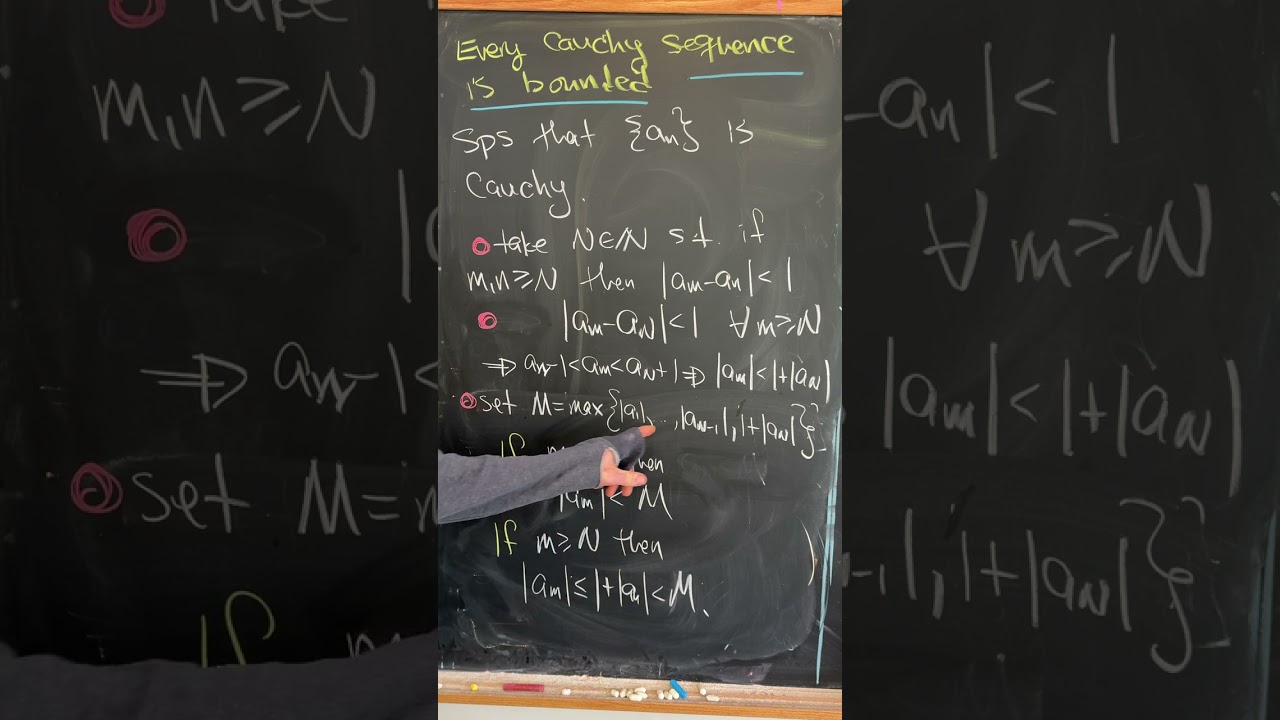 Every Cauchy sequence
is bounded
Sps that {aₙ} is
Cauchy.
take N∈ℕ s.t. if
m,n≥N then |aₘ-aₙ|<1
|aₘ-a_N|<1 ∀m≥N
⇒ a_N-1<aₘ<a_N+1 ⇒ |aₘ|<1+|a_N|
set M=max{|a₁|,...,|a_{N-1}|,1+|a_N|}
If
|aₘ|<M
If m≥N then
|aₘ|≤1+|a_N|<M.